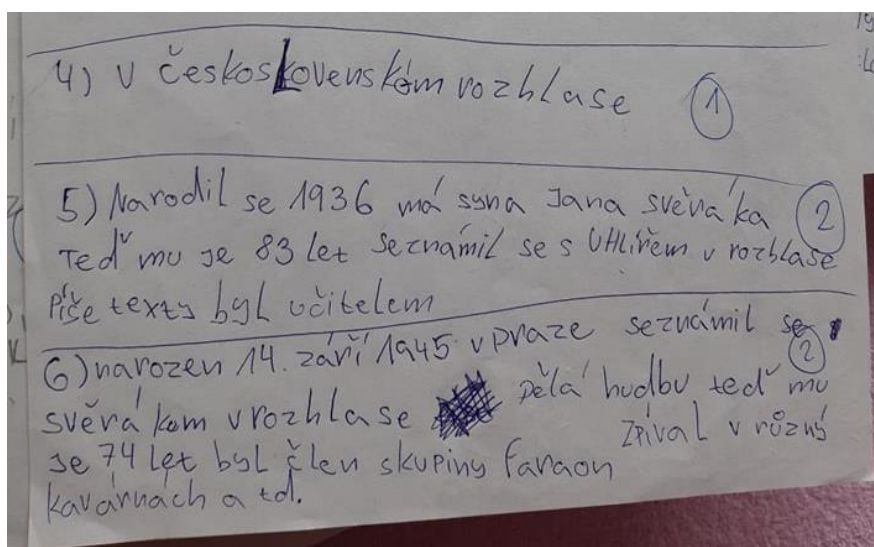 4) V Československém rozhlase 1
5) Narodil se 1936 má syna Jana svěráka 2
Teď mu je 83 let seznámil se s UHlířem v rozhlase
Píše texty byl učitelem
6) narozen 14. září 1945 v praze seznámil se 2
svěrákem v rozhlase Dělá hudbu teď mu
je 74 let byl člen skupiny faraon Zpíval v různý
kavárnách a td.